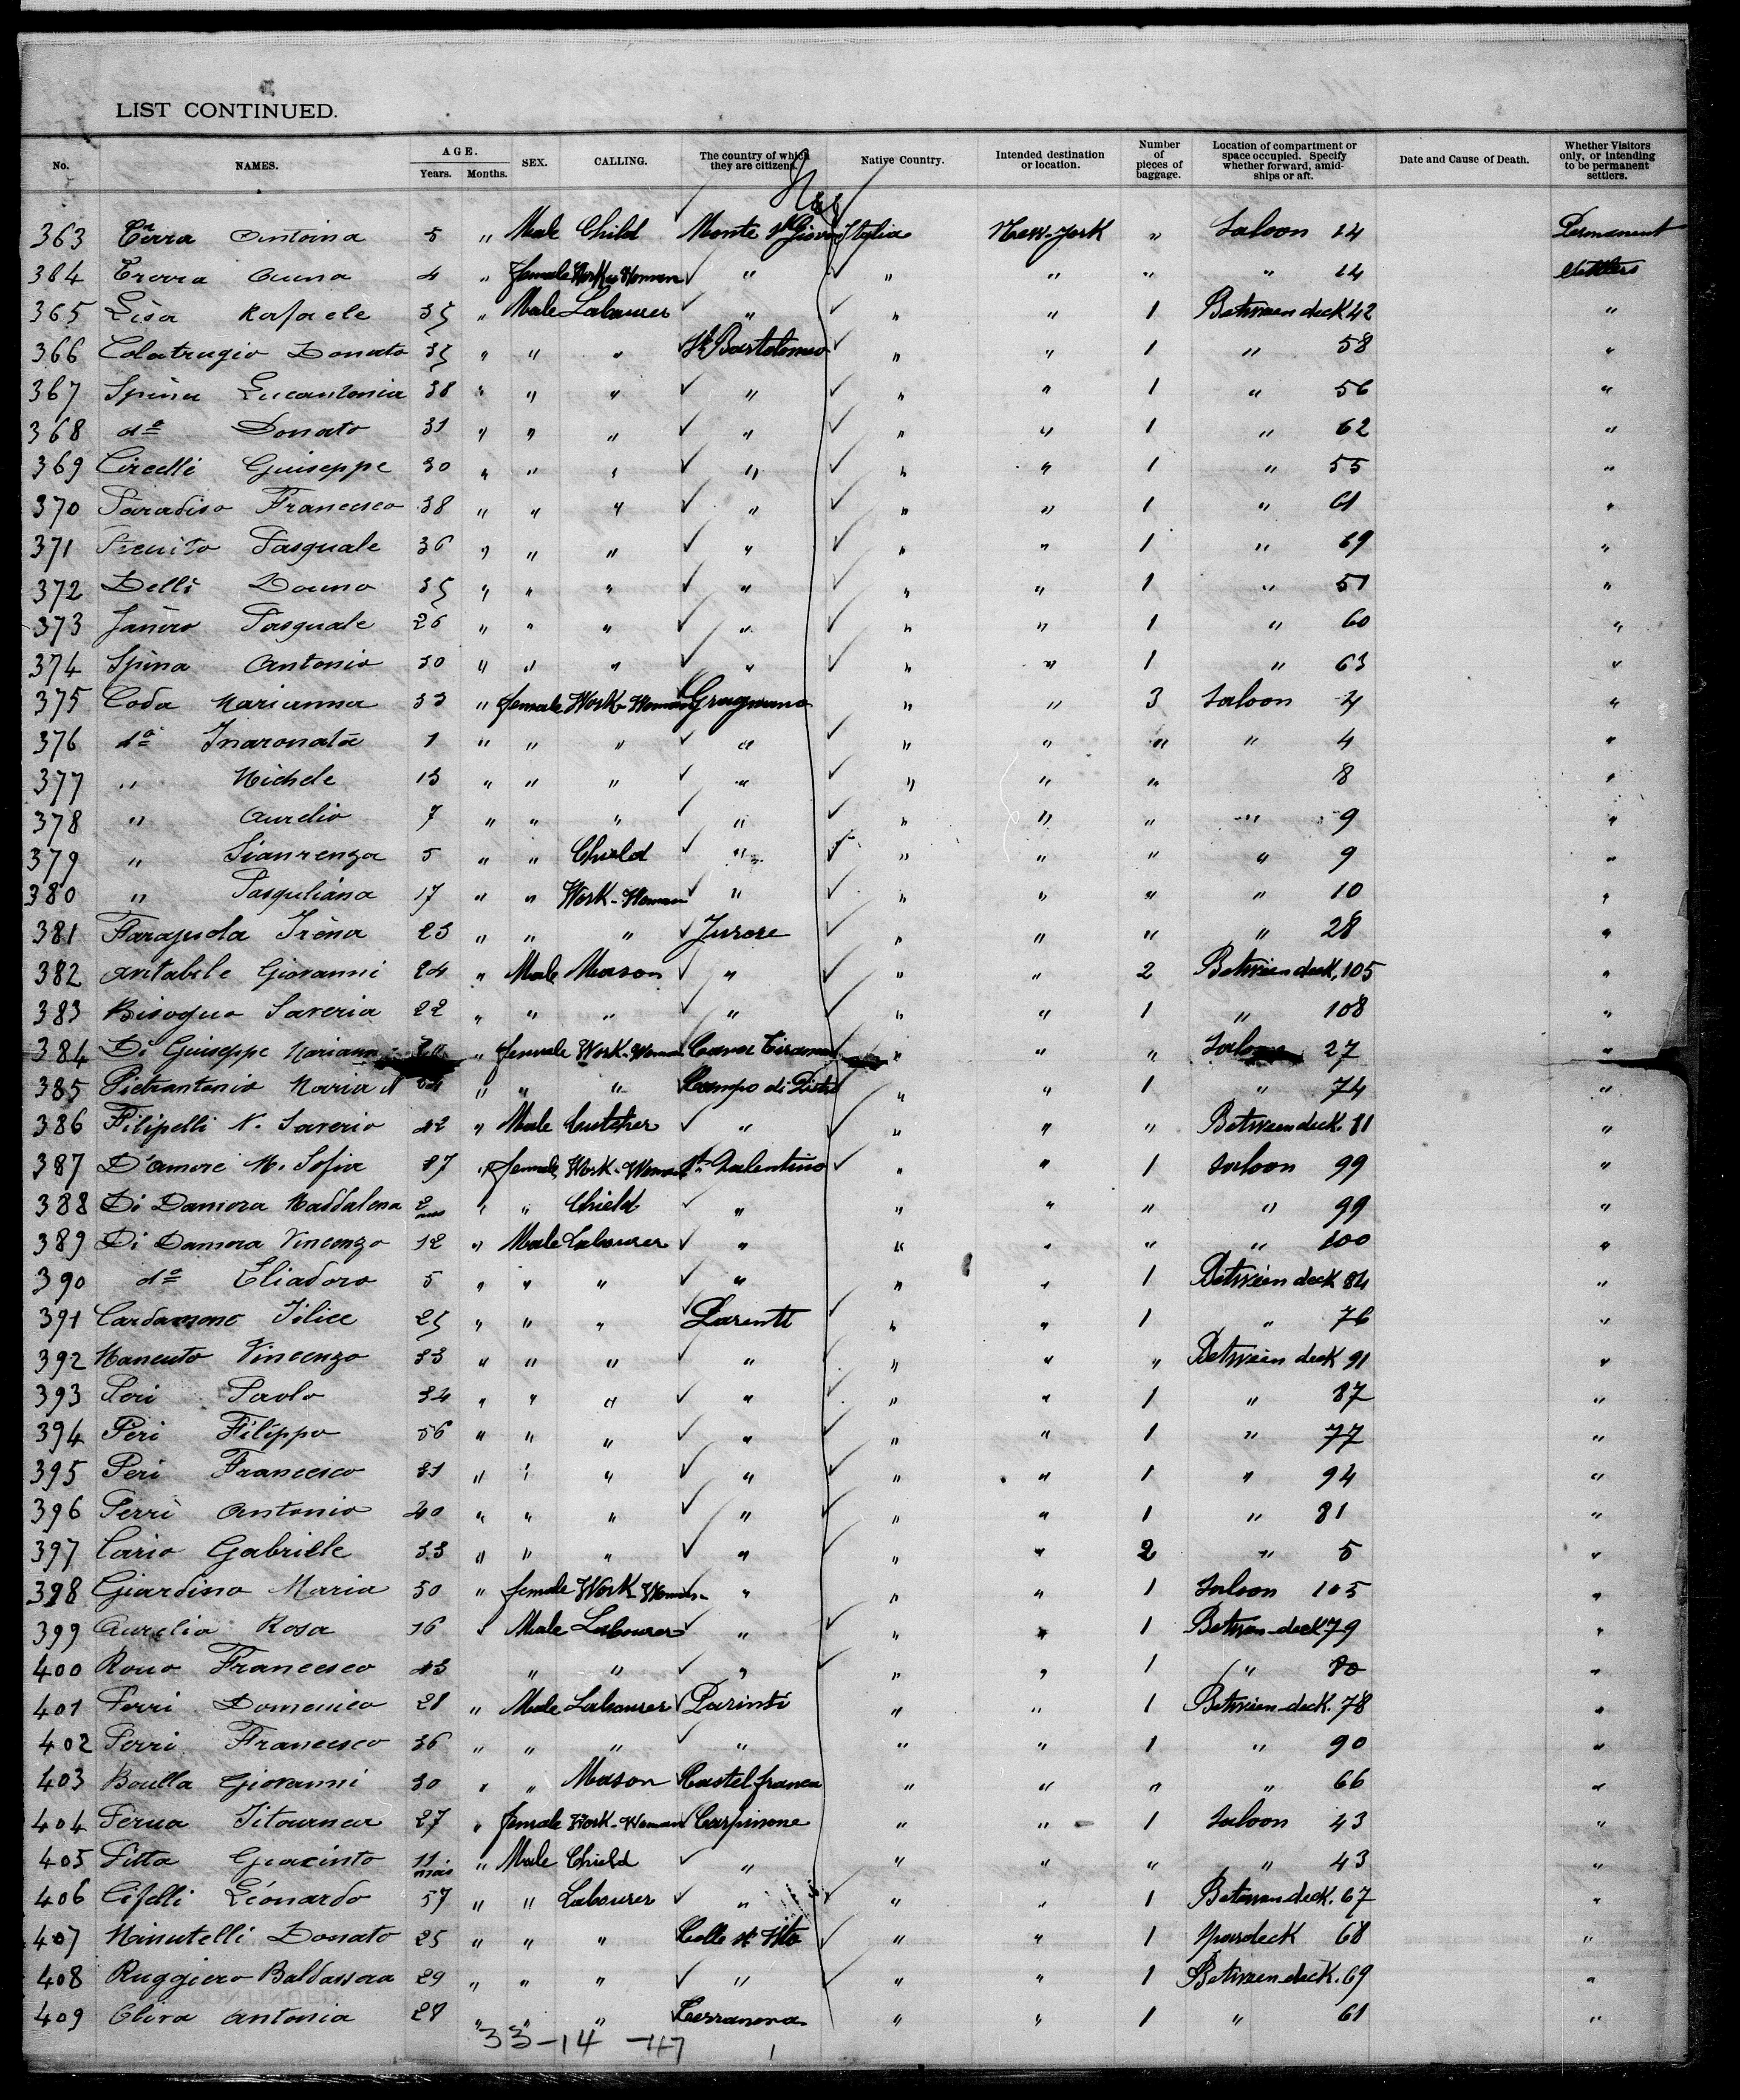 LIST CONTINUED.
No. NAMES. AGE. Years. Months. SEX. CALLING. The country of which they are citizens. Native Country. Intended destination or location. Number of pieces of baggage. Location of compartment or space occupied. Specify whether forward, amidships or aft. Date and Cause of Death. Whether Visitors only, or intending to be permanent settlers.
363 5 " Male Child Monte New-York " Saloon 14 Permanent
364 4 " female " " " " 14 settlers
365 Lisa Rafaele 35 " Male Labourer " " " 1 Between deck 42 "
366 Colatrugio Donato 35 " " " St Bartolomeo " " 1 " 58 "
367 Spina Lucantonia 38 " " " " " " 1 " 56 "
368 do Donato 31 " " " " " " 1 " 62 "
369 Circelli Guiseppe 30 " " " " " " 1 " 55 "
370 Paradiso Francesco 38 " " " " " " 1 " 61 "
371 Pasquale 36 " " " " " " 1 " 69 "
372 Delli 35 " " " " " " 1 " 51 "
373 Pasquale 26 " " " " " " 1 " 60 "
374 Spina Antonio 30 " " " " " " 1 " 63 "
375 Coda Marianna 33 " female Work-Woman Gragnano " " 3 Saloon 4 "
376 do 1 " " " " " " " " 4 "
377 " Michele 13 " " " " " " " 8 "
378 " Aurelio 7 " " " " " " " " 9 "
379 " 5 " " Chield " " " " " 9 "
380 " Pasquliana 17 " " Work-Woman " " " " " 10 "
381 Irèna 23 " " " Jurore " " " " 28 "
382 Avitabile Giovanni 24 " Male Mason " " " 2 Between deck, 105 "
383 Saveria 22 " " " " " " 1 " 108 "
384 Di Guiseppe " female Work-Woman Cava " " " Saloon 27 "
385 Pietrantonio Maria " " " Campo di " " 1 " 74 "
386 Filipelli N. Saverio 42 " Male " " " " Between deck. 81 "
387 D'amore M. Sofia 37 " female Work-Woman St. Valentino " " 1 Saloon 99 "
388 Di Damora Maddalena 2 " " Chield " " " " " 99 "
389 Di Damora Vincenzo 12 " Male Labourer " " " " " 100 "
390 do Eliadoro 5 " " " " " " 1 Between deck 84 "
391 Cardamone 25 " " " " " 1 " 76 "
392 Vincenzo 33 " " " " " " " Between deck 91 "
393 Paolo 34 " " " " " " 1 " 87 "
394 Peri Filippo 56 " " " " " " 1 " 77 "
395 Peri Francesco 31 " " " " " " 1 " 94 "
396 Perri Antonio 40 " " " " " " 1 " 81 "
397 Cario Gabriele 33 " " " " " " 2 " 5 "
398 Giardino Maria 50 " female Work-Woman " " " 1 Saloon 105 "
399 Aurelia Rosa 16 " Male Labourer " " " 1 79 "
400 Francesco 43 " " " " " 1 " 80 "
401 Perri Domenico 28 " Male Labourer Parinti " " 1 Between-deck. 78 "
402 Perri Francesco 36 " " " " " " 1 " 90 "
403 Giovanni 30 " " Mason Castelfranca " " " " 66 "
404 27 " female Work-Woman Carpinone " " 1 Saloon 43 "
405 Giacinto 11 " Male Chield " " " " " 43 "
406 Cifelli Léonardo 57 " " Labourer " " " 1 Between deck. 67 "
407 Minutelli Donato 25 " " " Colle St Vito " " 1 68 "
408 Ruggiero Baldassora 29 " " " " " " 1 Between deck. 69 "
409 Oliva Antonia 28 " " " Terranova " " 1 " 61 "
33-14 -47